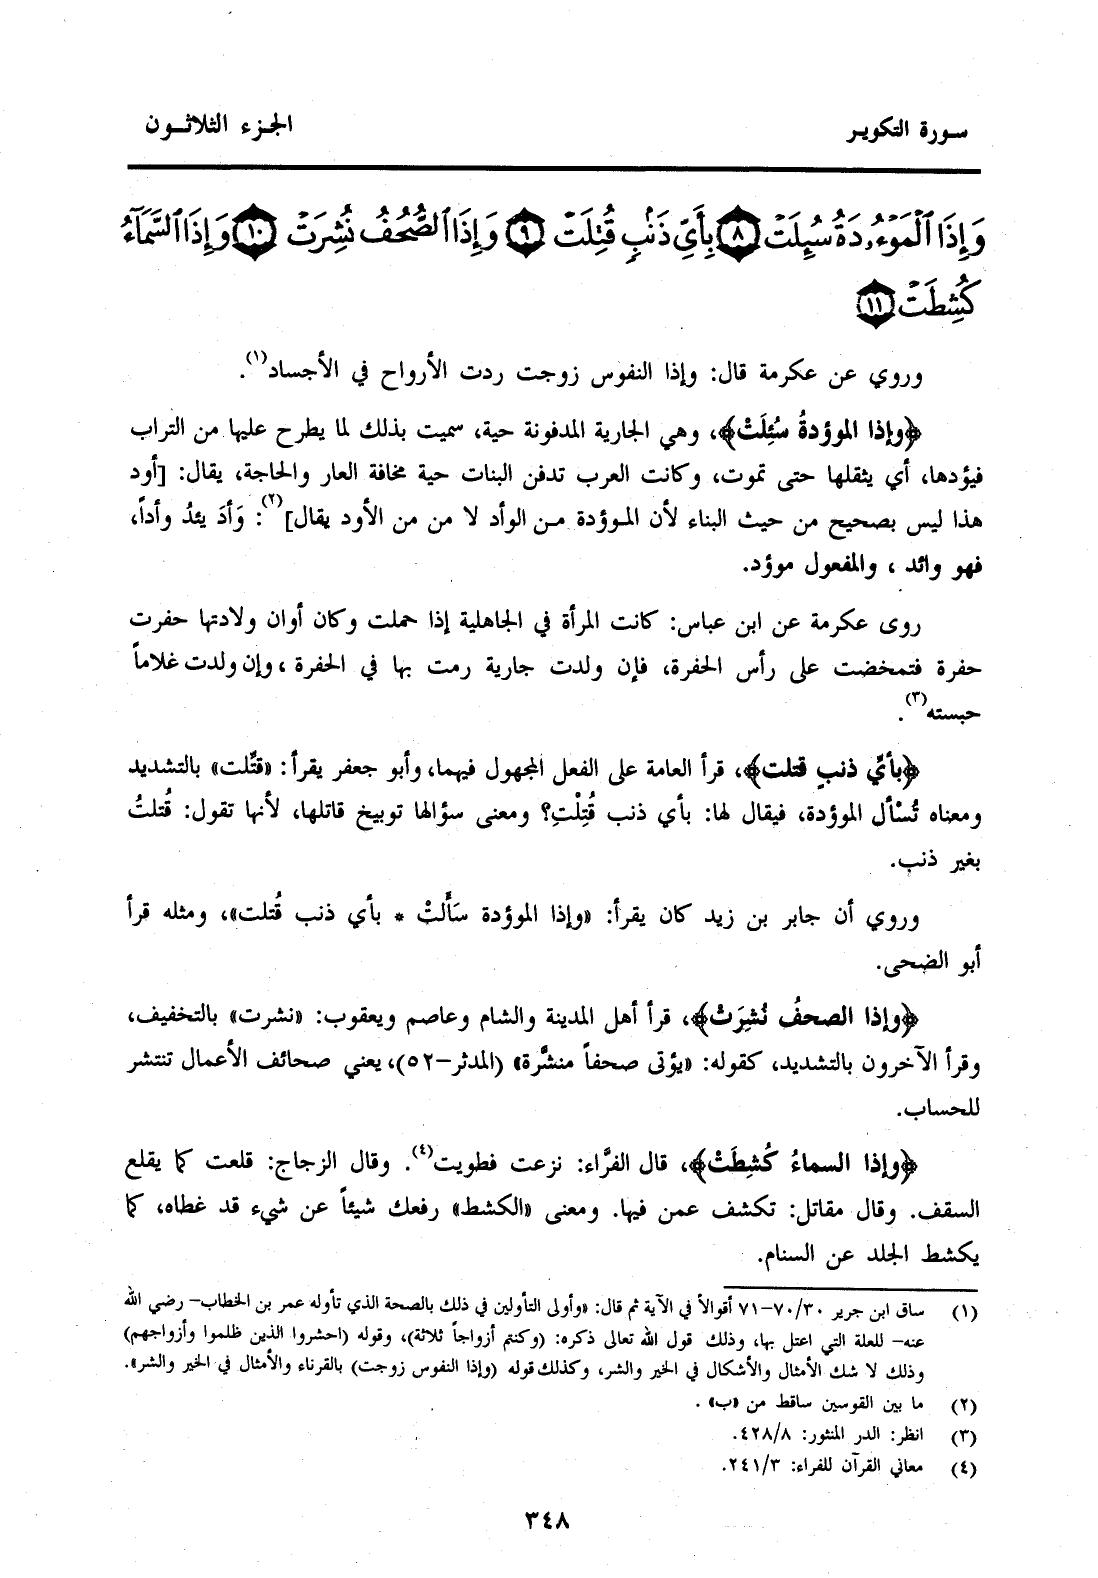 سورة التكوير
الجزء الثلاثون
وَإِذَا ٱلْمَوْءُۥدَةُ سُئِلَتْ ٨ بِأَىِّ ذَنۢبٍ قُتِلَتْ ٩ وَإِذَا ٱلصُّحُفُ نُشِرَتْ ١٠ وَإِذَا ٱلسَّمَآءُ
كُشِطَتْ ١١
وروي عن عكرمة قال: وإذا النفوس زوجت ردت الأرواح في الأجساد(١).
﴿وإذا الموؤدةُ سُئِلَتْ﴾، وهي الجارية المدفونة حية، سميت بذلك لما يطرح عليها من التراب
فيؤدها، أي يثقلها حتى تموت، وكانت العرب تدفن البنات حية مخافة العار والحاجة، يقال: [أود
هذا ليس بصحيح من حيث البناء لأن الموؤدة من الوأد لا من من الأود يقال](٢): وَأدَ يئدُ وأداً،
فهو وائد ، والمفعول موؤد.
روى عكرمة عن ابن عباس: كانت المرأة في الجاهلية إذا حملت وكان أوان ولادتها حفرت
حفرة فتمخضت على رأس الحفرة، فإن ولدت جارية رمت بها في الحفرة ، وإن ولدت غلاماً
حبسته(٣).
﴿بأيِّ ذنبٍ قتلت﴾، قرأ العامة على الفعل المجهول فيهما، وأبو جعفر يقرأ: «قتِّلت» بالتشديد
ومعناه تُسْأل الموؤدة، فيقال لها: بأي ذنب قُتِلْتِ؟ ومعنى سؤالها توبيخ قاتلها، لأنها تقول: قُتلتُ
بغير ذنب.
وروي أن جابر بن زيد كان يقرأ: «وإذا الموؤدة سَأَلتْ * بأي ذنب قُتلت»، ومثله قرأ
أبو الضحى.
﴿وإذا الصحفُ نُشِرَتْ﴾، قرأ أهل المدينة والشام وعاصم ويعقوب: «نشرت» بالتخفيف،
وقرأ الآخرون بالتشديد، كقوله: «يؤتى صحفاً منشَّرة» (المدثر–٥٢)، يعني صحائف الأعمال تنتشر
للحساب.
﴿وإذا السماءُ كُشِطَتْ﴾، قال الفرَّاء: نزعت فطويت(٤). وقال الزجاج: قلعت كما يقلع
السقف. وقال مقاتل: تكشف عمن فيها. ومعنى «الكشط» رفعك شيئاً عن شيء قد غطاه، كما
يكشط الجلد عن السنام.
(١) ساق ابن جرير ٣٠/٧٠–٧١ أقوالاً في الآية ثم قال: «وأولى التأولين في ذلك بالصحة الذي تأوله عمر بن الخطاب– رضي الله
عنه– للعلة التي اعتل بها، وذلك قول الله تعالى ذكره: (وكنتم أزواجاً ثلاثة)، وقوله (احشروا الذين ظلموا وأزواجهم)
وذلك لا شك الأمثال والأشكال في الخير والشر، وكذلك قوله (وإذا النفوس زوجت) بالقرناء والأمثال في الخير والشر».
(٢) ما بين القوسين ساقط من «ب» .
(٣) انظر: الدر المنثور: ٤٢٨/٨.
(٤) معاني القرآن للفراء: ٢٤١/٣.
٣٤٨